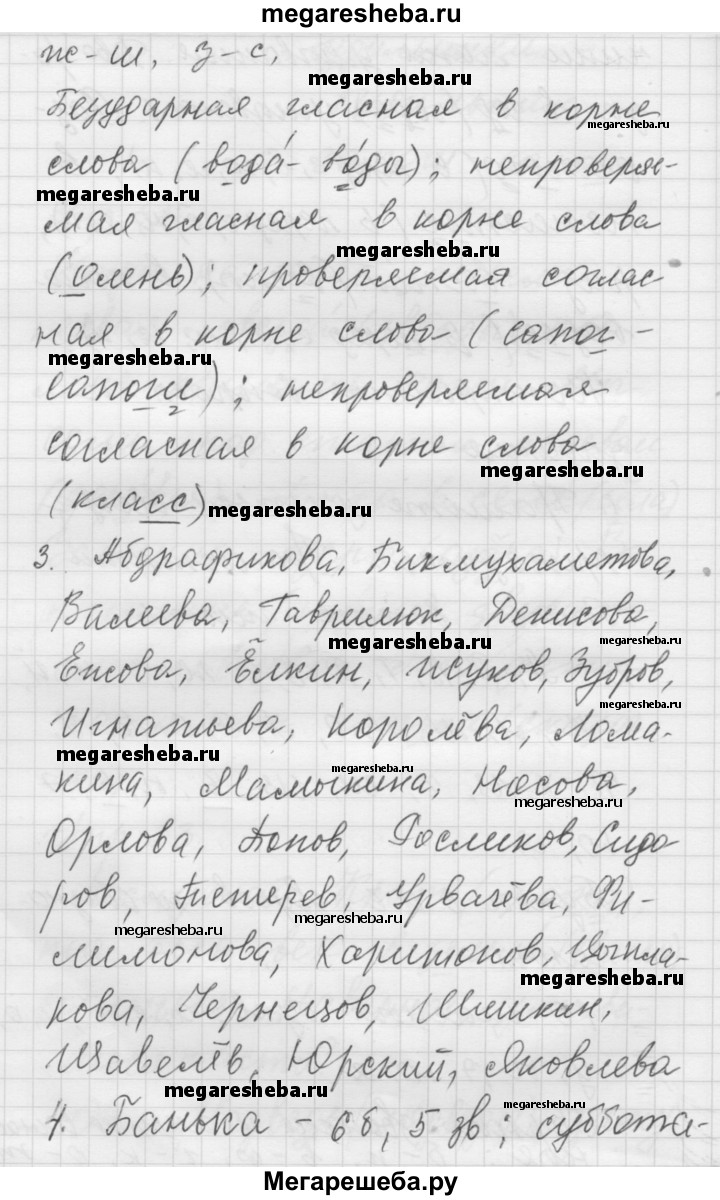 megaresheba.ru
ж-ш, з-с,
megaresheba.ru
Безударная гласная в корне
megaresheba.ru
слова (вода́ - во́ды); непроверяе-
megaresheba.ru
мая гласная в корне слова
megaresheba.ru
(олень); проверяемая соглас
ная в корне слова (сапог -
megaresheba.ru
сапоги); непроверяемая
согласная в корне слова
megaresheba.ru
(класс) megaresheba.ru
3. Абдрафикова, Бикмухаметова,
Валеева, Гаврилюк, Денисова,
megaresheba.ru megaresheba.ru
Ежова, Ёлкин, Жуков, Зубров,
Игнатьева, Королёва, Лома-
megaresheba.ru megaresheba.ru
кина, Мамыкина, Носова,
megaresheba.ru
Орлова, Попов, Росликов, Сидо
ров, Тетерев, Урвачёва, Фи-
megaresheba.ru megaresheba.ru
лимонова, Харитонов, Цыпла-
megaresheba.ru
кова, Чернецов, Шишкин,
Щавелёв, Юрский, Яковлева
megaresheba.ru megaresheba.ru
4. Банька - 6 б, 5 зв; суббота-
Мегарешеба.ру